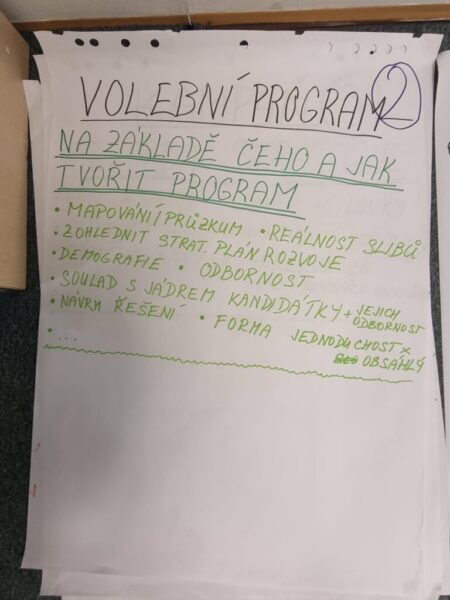 VOLEBNÍ PROGRAM 2
NA ZÁKLADĚ ČEHO A JAK
TVOŘIT PROGRAM
• MAPOVÁNÍ PRŮZKUM • REÁLNOST SLIBŮ
• ZOHLEDNIT STRAT. PLÁN ROZVOJE
• DEMOGRAFIE • ODBORNOST
• SOULAD S JÁDREM KANDIDÁTKY + JEJICH ODBORNOST
• NÁVRH ŘEŠENÍ • FORMA JEDNODUCHOST x
• ... OBSÁHLÝ